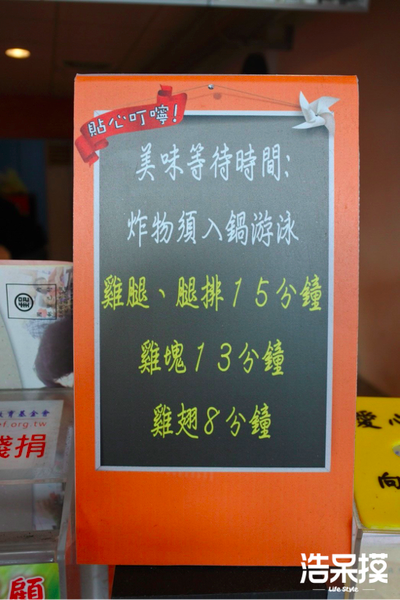 貼心叮嚀!
美味等待時間:
炸物須入鍋游泳
雞腿、腿排15分鐘
雞塊13分鐘
雞翅8分鐘
基金會
f.org.tw
捐
愛心
向
顧
浩呆摸
Life Style